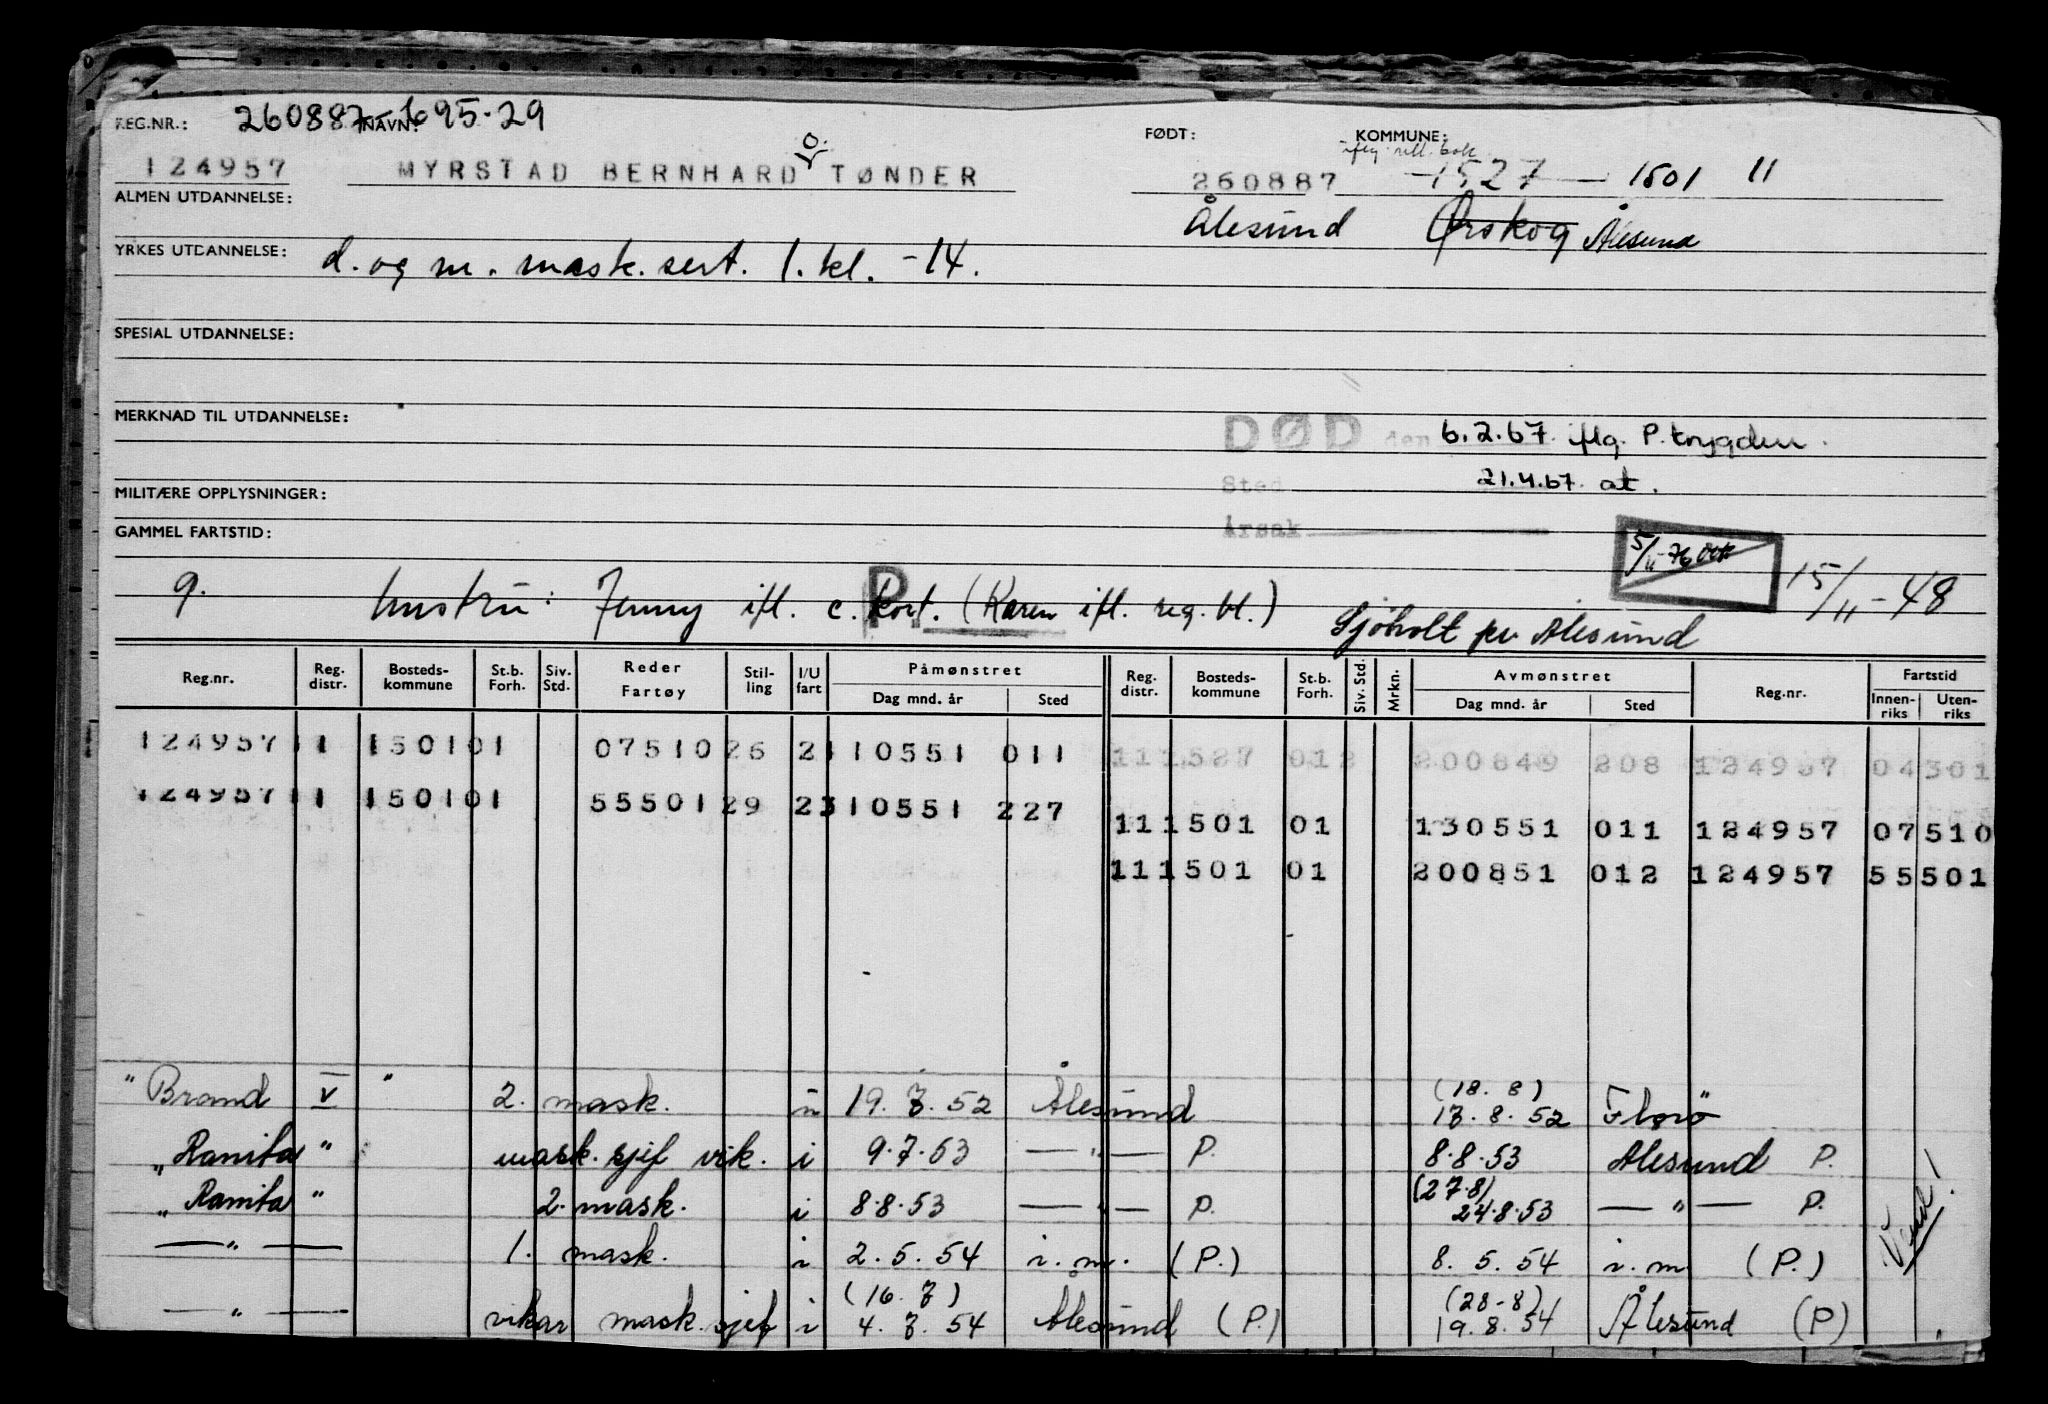 REG.NR.: 260887 NAVN: 695.29 FØDT: KOMMUNE:
iflg. rull. bok
124957 MYRSTAD BERNHARD O. TØNDER 260887 1527 — 1501 11
ALMEN UTDANNELSE: Ålesund Ørskog Ålesund
YRKES UTDANNELSE: d. og m. mask. sert. 1. kl. -14.
SPESIAL UTDANNELSE:
MERKNAD TIL UTDANNELSE: DØD den 6.2.67. iflg. P.trygden.
MILITÆRE OPPLYSNINGER: Sted 21.4.67. at.
GAMMEL FARTSTID: Årsak
5/11-76 15/11-48
g. hustru: Jenny ifl. c. kort. (Karen ifl. reg. bl.) P.
Sjøholt pr Ålesund
Reg.nr. Reg. distr. Bosteds-kommune St.b. Forh. Siv. Std. Reder Fartøy Stil-ling I/U fart Påmønstret Dag mnd. år Sted Reg. distr. Bosteds-kommune St.b. Forh. Siv. Std. Mrkn. Avmønstret Dag mnd. år Sted Reg.nr. Fartstid Innen-riks Uten-riks
124957 11 1501 01 07510 26 2 110551 011 11 1527 012 200849 208 124957 04301
124957 11 1501 01 55501 29 2 310551 227
11 1501 01 130551 011 124957 07510
11 1501 01 200851 012 124957 55501
"Brand V" 2. mask. u 19.7.52 Ålesund (18.8) 17.8.52 Florø
"Ranita" mask. sjef vik. i 9.7.53 — " — P. 8.8.53 Ålesund P.
"Ranita" 2. mask. i 8.8.53 — " — P. (27.8) 24.8.53 — " — P.
— " — 1. mask. i 2.5.54 i.m. (P.) 8.5.54 i.m (P.)
— " — vikar mask. sjef i (16.7) 4.7.54 Ålesund (P.) (28-8) 19.8.54 Ålesund (P)
Vend!